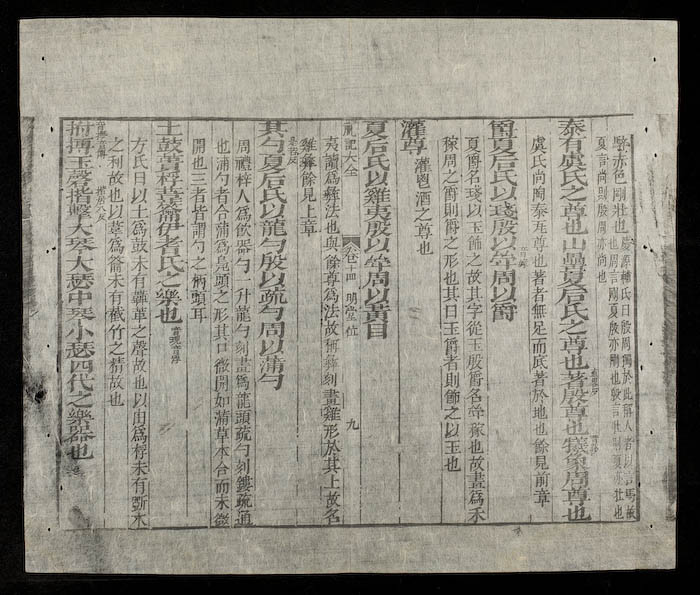 騂赤色剛壯也
泰有虞氏之尊也山罍夏后氏之尊也著殷尊也犧象周尊也
虞氏尚陶泰瓦尊也著者無足而底著於地也餘見前章
爵夏后氏以琖殷以斝周以爵
夏爵名琖以玉飾之故其字從玉殷爵名斝稼也故畫爲禾
稼周之爵則爵之形也其曰玉爵者則飾之以玉也
灌尊 灌鬯酒之尊也
夏后氏以雞夷殷以斝周以黃目
夷讀爲彝法也與餘尊爲法故稱彝刻畫雞形於其上故名
禮記大全 卷十四 明堂位 九
雞彝餘見上章
其勺夏后氏以龍勺殷以疏勺周以蒲勺
周禮梓人爲飲器勺一升龍勺刻畫爲龍頭疏勺刻鏤疏通
也蒲勺者合蒲爲鳧頭之形其口微開如蒲草本合而末微
開也三者皆謂勺之柄頭耳
土鼓蕢桴葦籥伊耆氏之樂也
方氏曰以土爲鼓未有鞉革之聲故也以凷爲桴未有斲木
之利故也以葦爲籥未有截竹之精故也
拊搏玉磬揩擊大琴大瑟中琴小瑟四代之樂器也